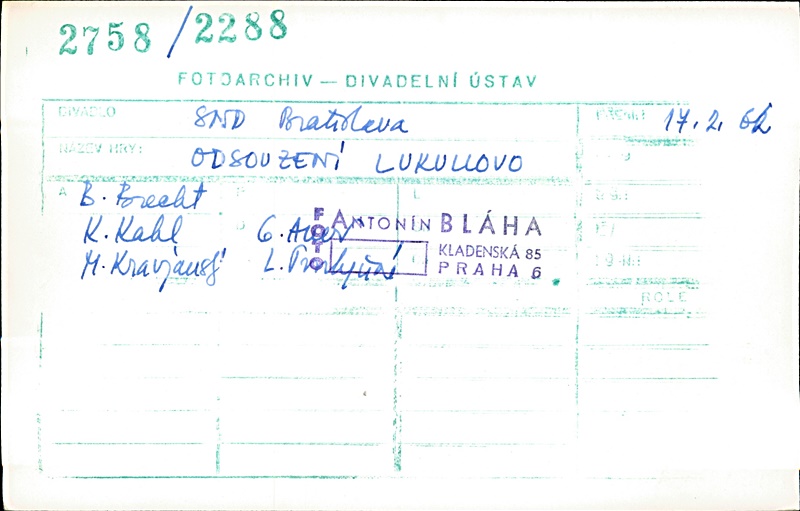 2758/2288
FOTOARCHIV — DIVADELNÍ ÚSTAV
DIVADLO SND Bratislava 17.2.62
NÁZEV HRY: ODSOUZENÍ LUKULLOVO
A B. Brecht L
K. Kahl G. Auer
M. Kravjanský L.
FOTO ANTONÍN BLÁHA
KLADENSKÁ 85
PRAHA 6
ROLE